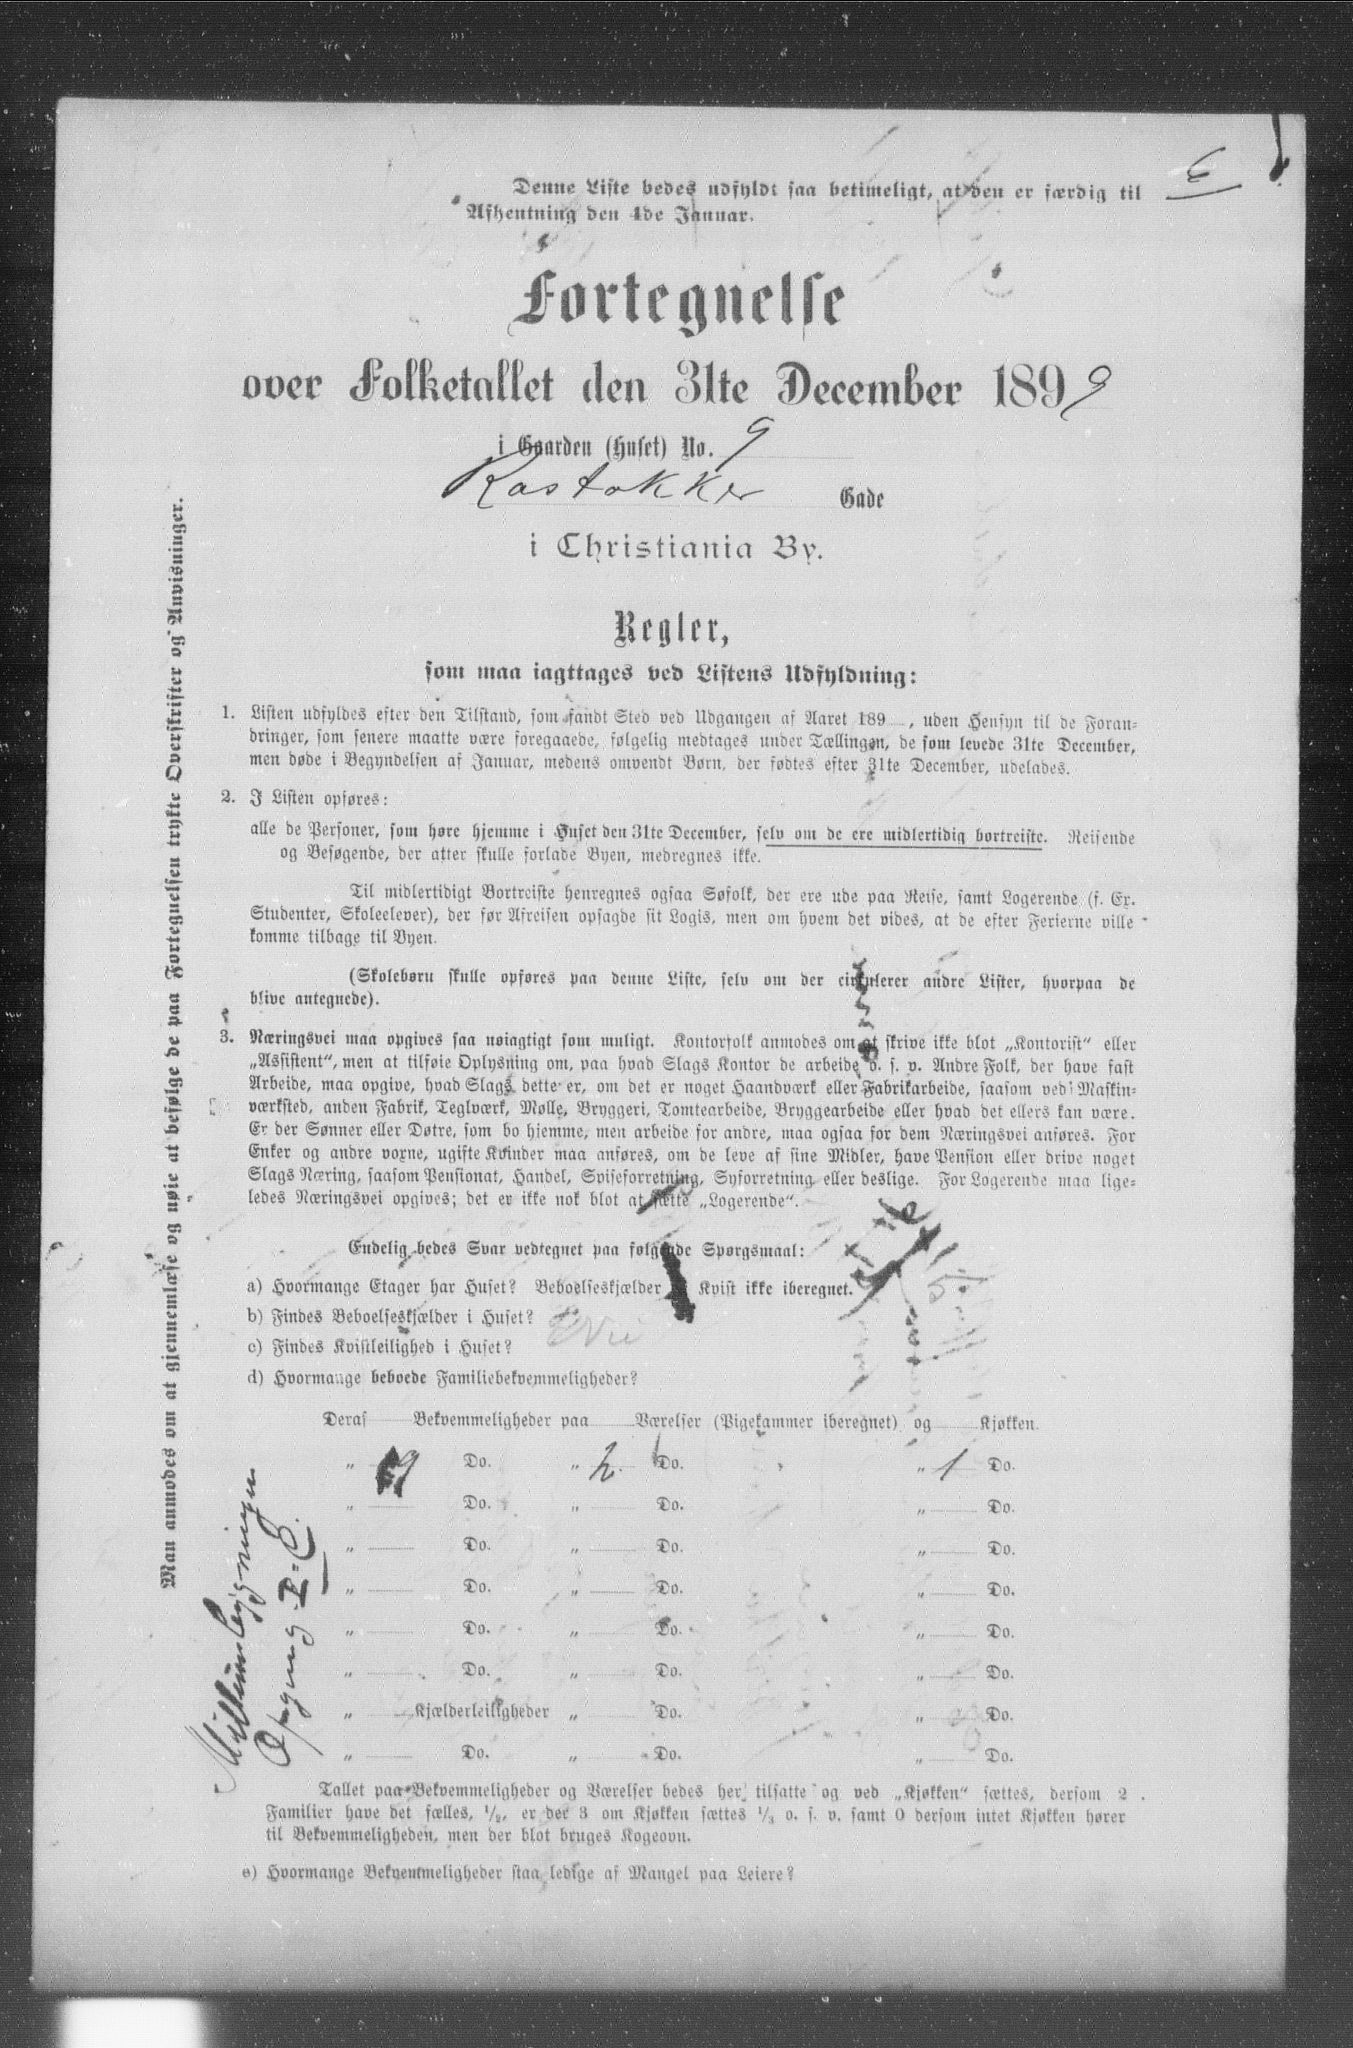 Denne Liste bedes udfyldt saa betimeligt, at den er færdig til
Afhentning den 4de Januar.
Fortegnelse
over Folketallet den 31te December 1899
i Gaarden (Huset) No. 9
Rostokker Gade
i Christiania By.
Regler,
som maa iagttages ved Listens Udfyldning:
1. Listen udfyldes efter den Tilstand, som fandt Sted ved Udgangen af Aaret 189 , uden Hensyn til de Foran-
dringer, som senere maatte være foregaaede, følgelig medtages under Tællingen, de som levede 31te December,
men døde i Begyndelsen af Januar, medens omvendt Børn, der fødtes efter 31te December, udelades.
2. I Listen opføres:
alle de Personer, som høre hjemme i Huset den 31te December, selv om de ere midlertidig bortreiste. Reisende
og Besøgende, der atter skulle forlade Byen, medregnes ikke.
Til midlertidigt Bortreiste henregnes ogsaa Søfolk, der ere ude paa Reise, samt Logerende (f. Ex.
Studenter, Skoleelever), der før Afreisen opsagde sit Logis, men om hvem det vides, at de efter Ferierne ville
komme tilbage til Byen.
(Skolebørn skulle opføres paa denne Liste, selv om der cirkulerer andre Lister, hvorpaa de
blive antegnede).
3. Næringsvei maa opgives saa nøiagtigt som muligt. Kontorfolk anmodes om at skrive ikke blot „Kontorist“ eller
„Assistent“, men at tilføie Oplysning om, paa hvad Slags Kontor de arbeide o. s. v. Andre Folk, der have fast
Arbeide, maa opgive, hvad Slags dette er, om det er noget Haandværk eller Fabrikarbeide, saasom ved Maskin-
værksted, anden Fabrik, Teglværk, Mølle, Bryggeri, Tomtearbeide, Bryggearbeide eller hvad det ellers kan være.
Er der Sønner eller Døtre, som bo hjemme, men arbeide for andre, maa ogsaa for dem Næringsvei anføres. For
Enker og andre voxne, ugifte Kvinder maa anføres, om de leve af sine Midler, have Pension eller drive noget
Slags Næring, saasom Pensionat, Handel, Spiseforretning, Syforretning eller deslige. For Logerende maa lige-
ledes Næringsvei opgives; det er ikke nok blot at sætte „Logerende“.
Endelig bedes Svar vedtegnet paa følgende Spørgsmaal:
a) Hvormange Etager har Huset? Beboelseskjælder Kvist ikke iberegnet.
b) Findes Beboelseskjælder i Huset?
c) Findes Kvistleilighed i Huset?
d) Hvormange beboede Familiebekvemmeligheder?
Deraf Bekvemmeligheder paa Værelser (Pigekammer iberegnet) og Kjøkken.
„ 9 Do. „ 2 Do. „ 1 Do.
„ Do. „ Do. „ Do.
„ Do. „ Do. „ Do.
„ Do. „ Do. „ Do.
„ Do. „ Do. „ Do.
„ Do. „ Do. „ Do.
„ Kjælderleiligheder „ Do. „ Do.
„ Do. „ Do. „ Do.
Tallet paa Bekvemmeligheder og Værelser bedes her tilsatte og ved „Kjøkken“ sættes, dersom 2
Familier have det fælles, 1/2, er der 3 om Kjøkken sættes 1/3 o. s. v. samt 0 dersom intet Kjøkken hører
til Bekvemmeligheden, men der blot bruges Kogeovn.
e) Hvormange Bekvemmeligheder staa ledige af Mangel paa Leiere?
Man anmodes om at gjennemlæse og nøie at befølge de paa Fortegnelsen trykte Overskrifter og Anvisninger.
Mellembygningen
Opgang